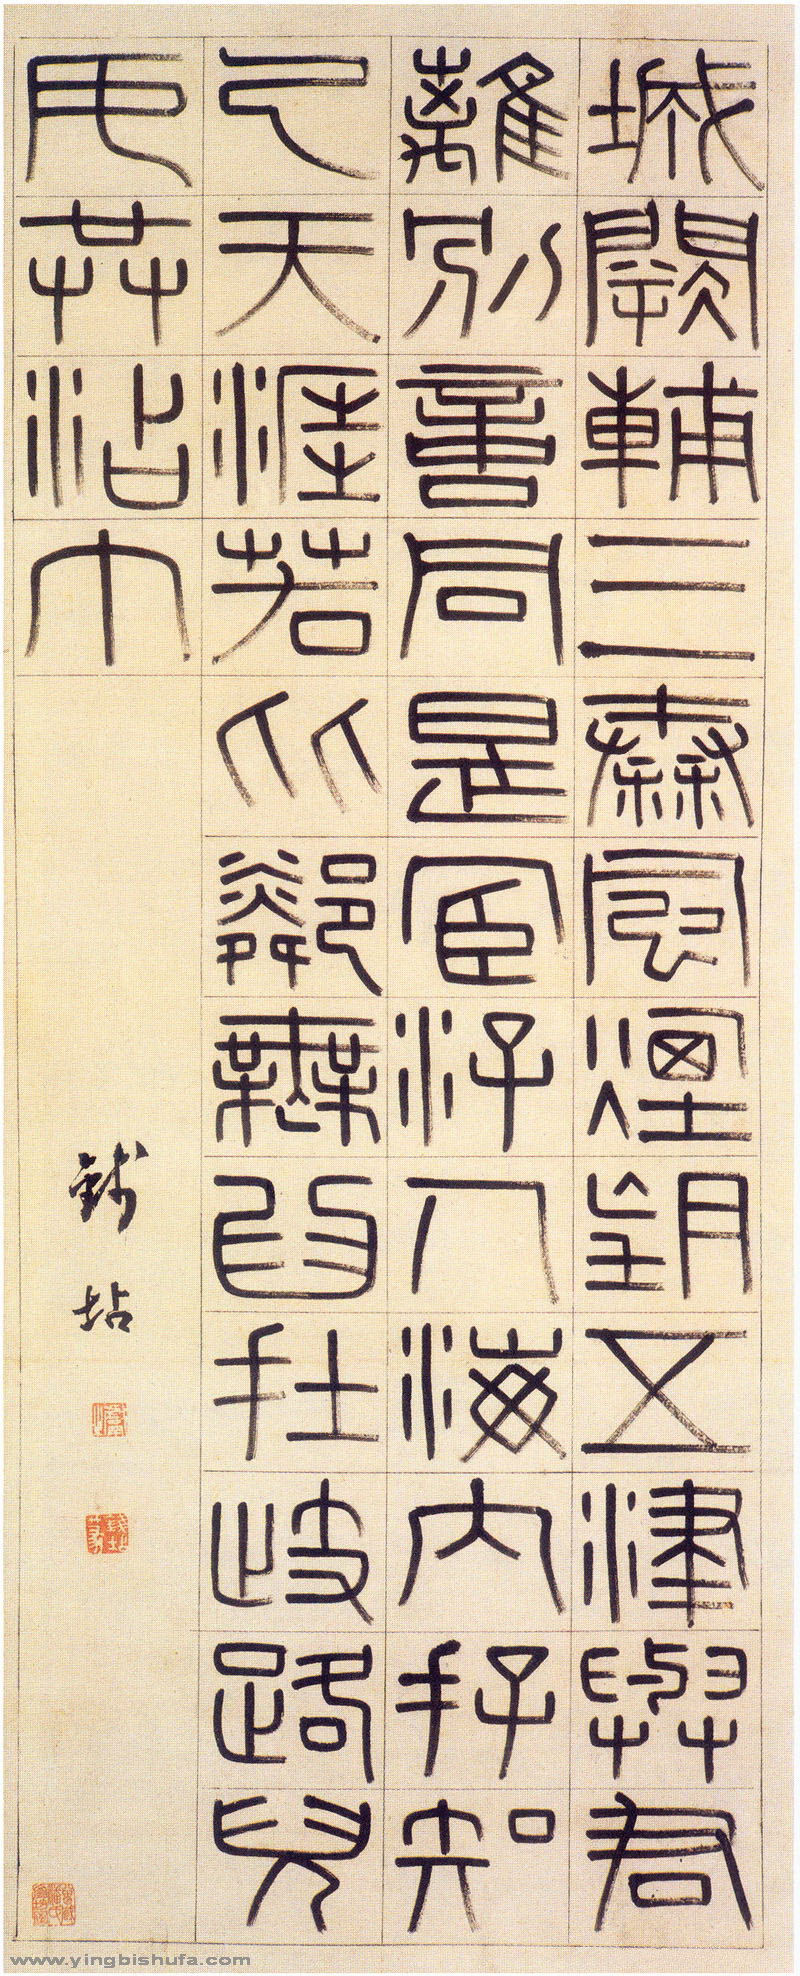 城闕輔三秦風煙望五津與君
離別意同是宦汓人海內存知
己天涯若比鄰無為在歧路兒
女共沾巾
錢坫
www.yingbishufa.com